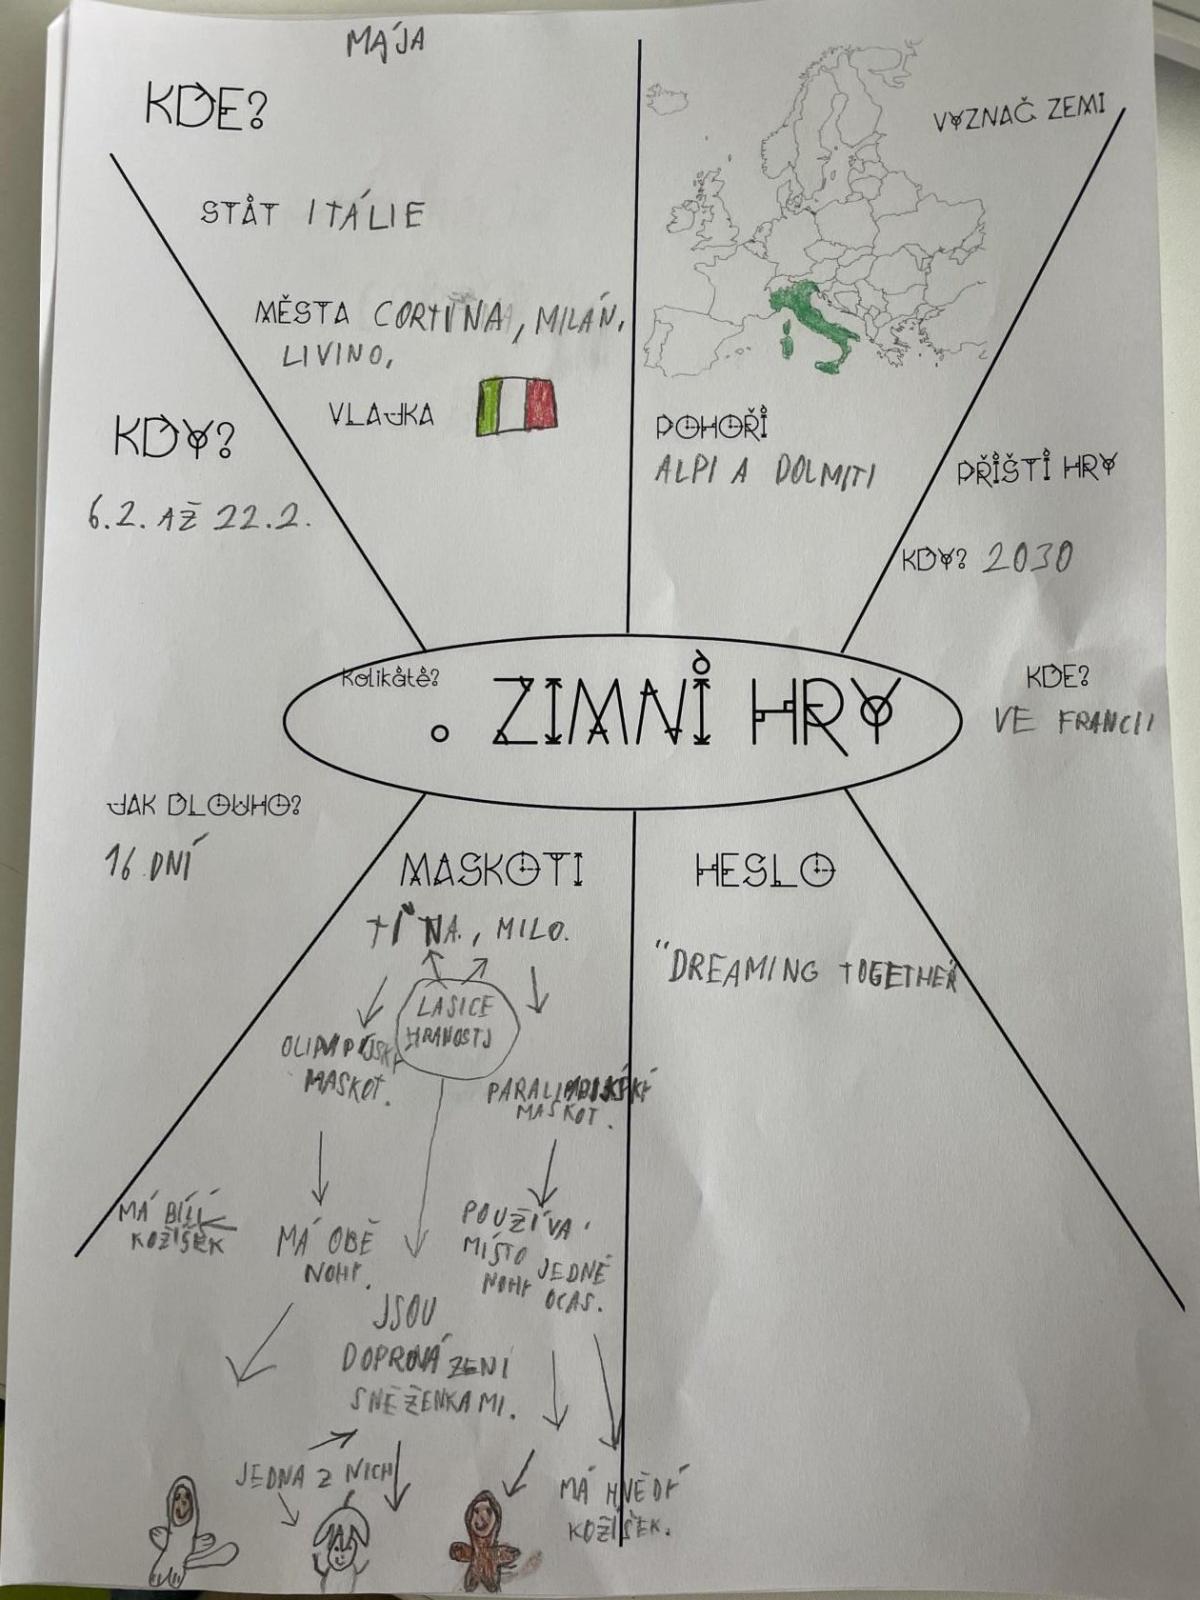 MÁJA
KDE?
STÁT ITÁLIE
MĚSTA CORTINA, MILÁN,
LIVINO,
VLAJKA
VYZNAČ ZEMI
POHOŘÍ
ALPI A DOLMITI
KDY?
6.2. AŽ 22.2.
PŘÍŠTÍ HRY
KDY? 2030
KDE?
VE FRANCII
Kolikáté?
. ZIMNÍ HRY
JAK DLOUHO?
16 DNÍ
MASKOTI
TINA., MILO.
LASICE
HRANOSTJ
MASKOT.
MASKOT.
MÁ BÍLÍ
KOŽÍŠEK
MÁ OBĚ
NOHY.
POUŽÍVÁ
MÍSTO JEDNÉ
NOHY OCAS.
JSOU
DOPROVÁZENÍ
SNĚŽENKAMI.
JEDNA Z NICH
MÁ HNĚDÝ
KOŽÍŠEK.
HESLO
"DREAMING TOGETHER